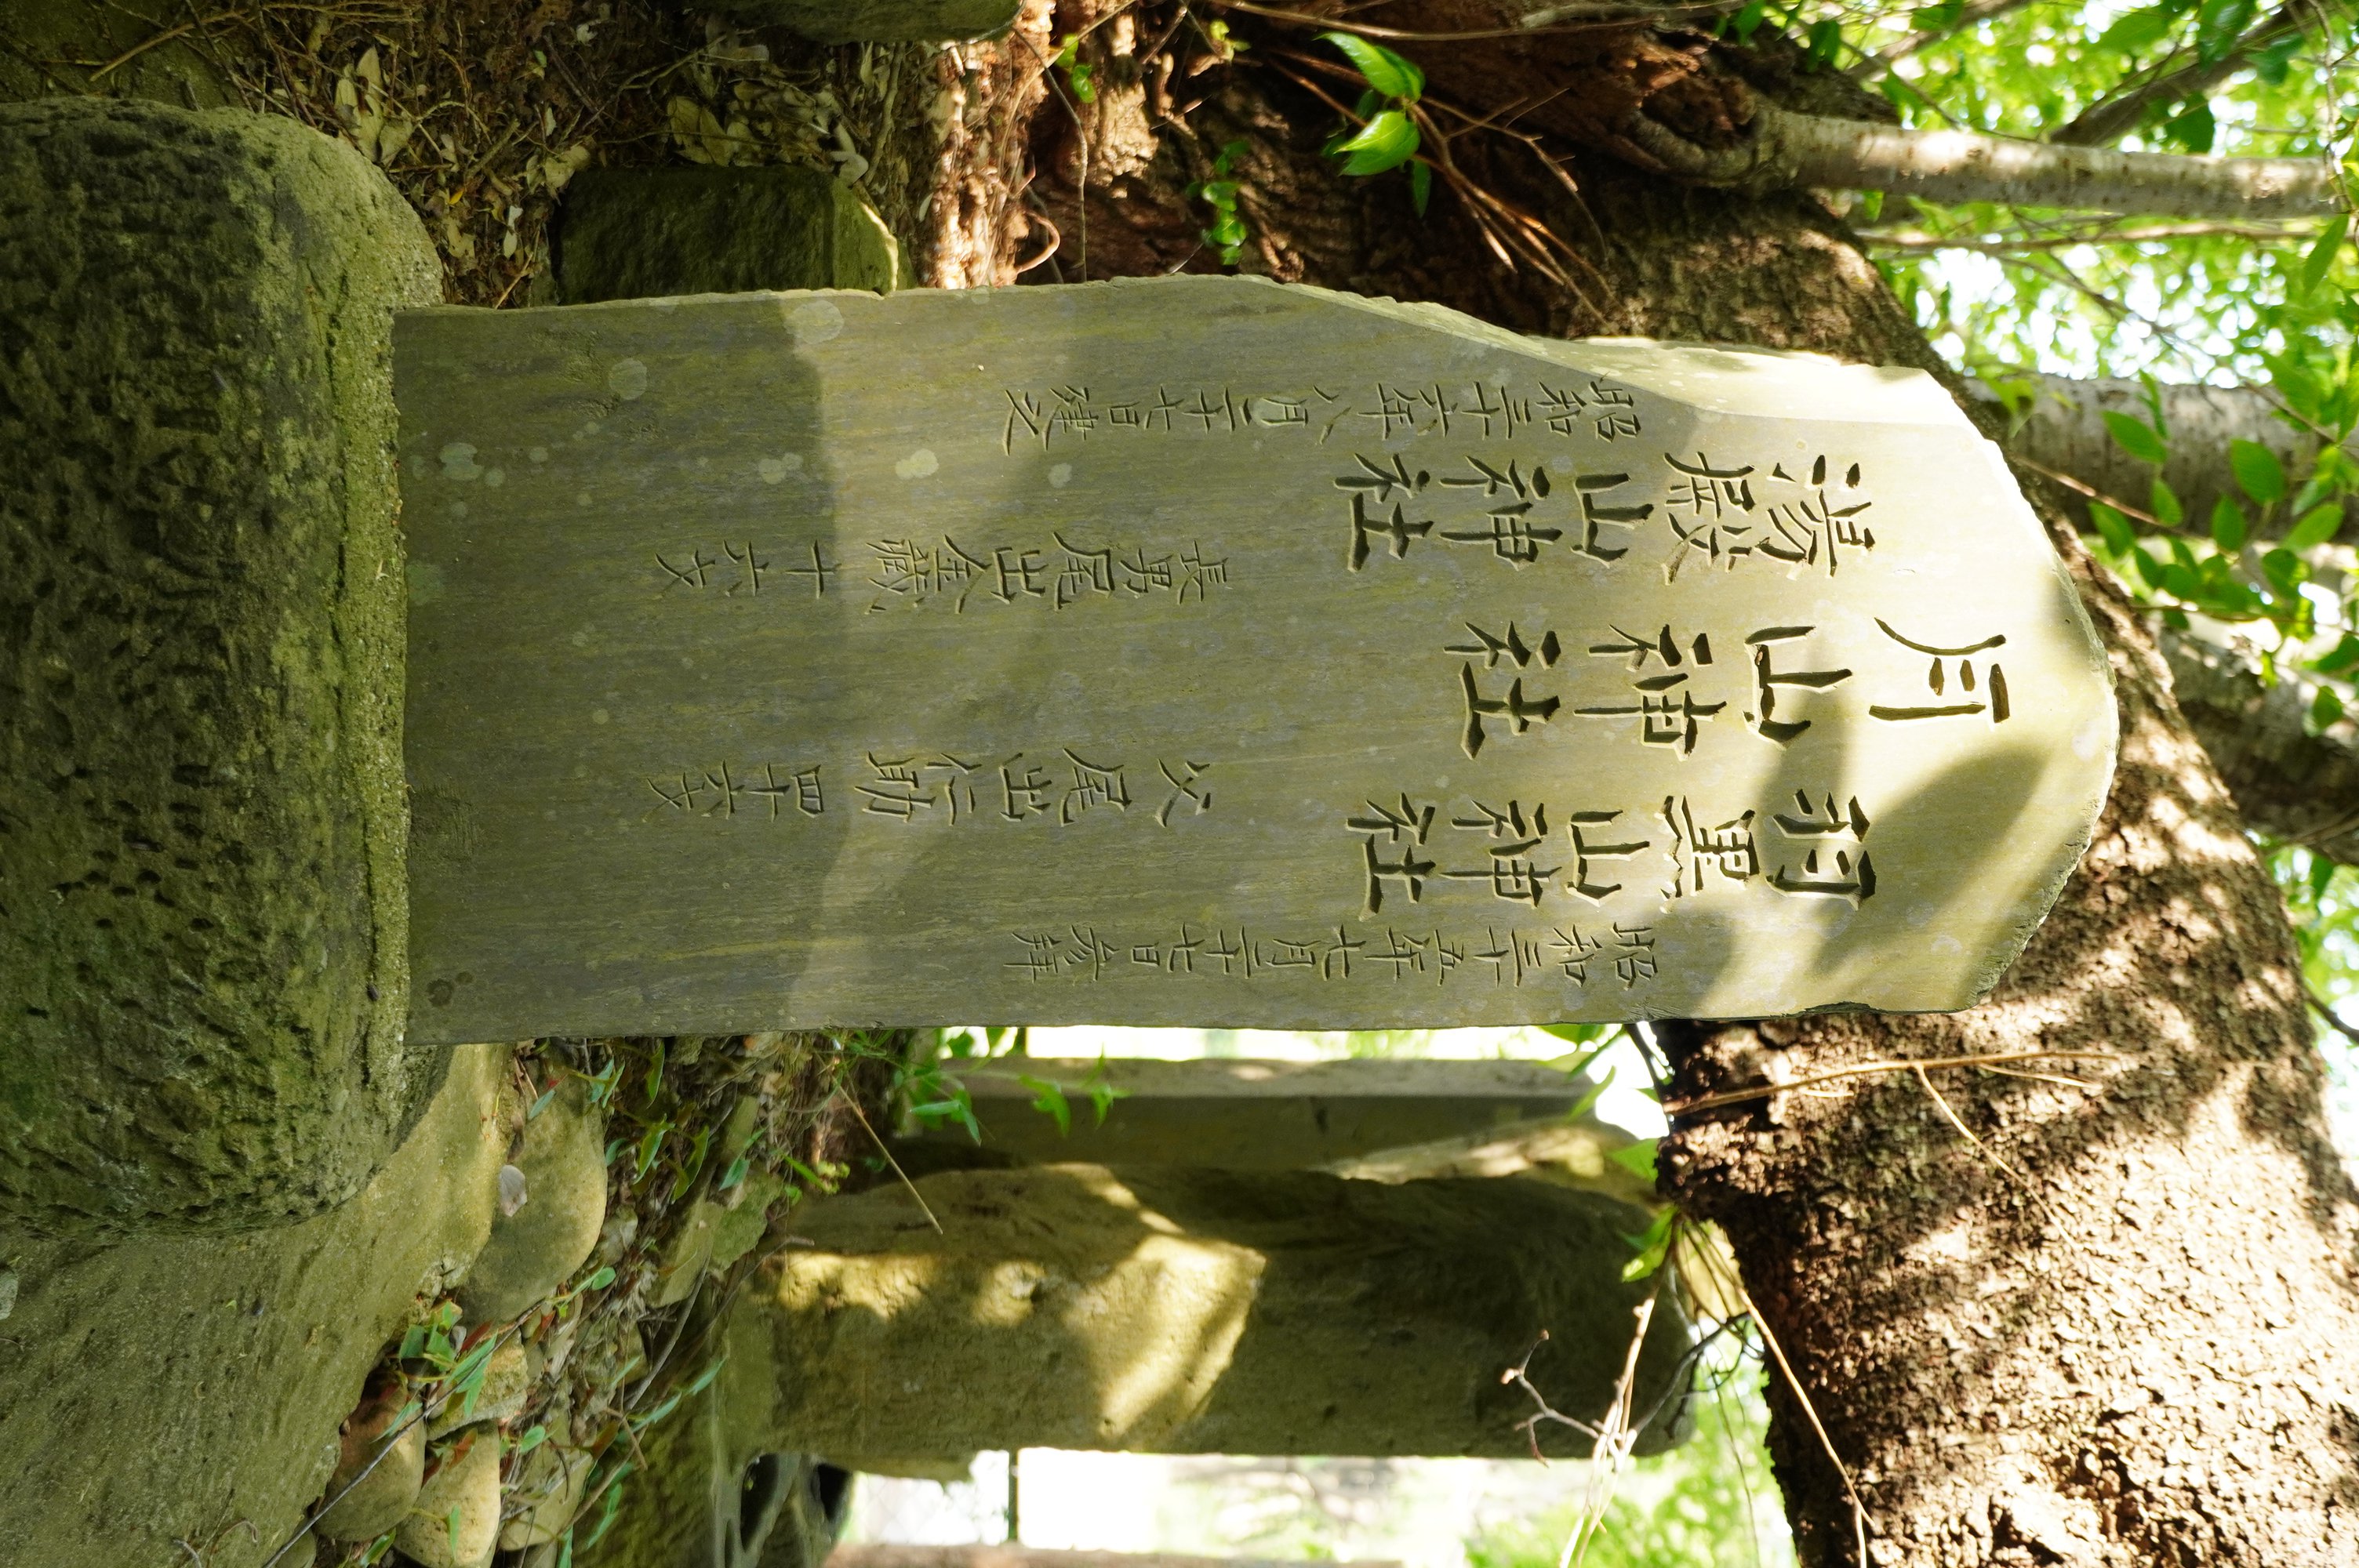 昭和三十五年七月二十七日参拝
羽黒山神社
月山神社
湯殿山神社
父尾出仁助 四十六才
長男尾出金蔵 十六才
昭和三十六年八月二十七日建之